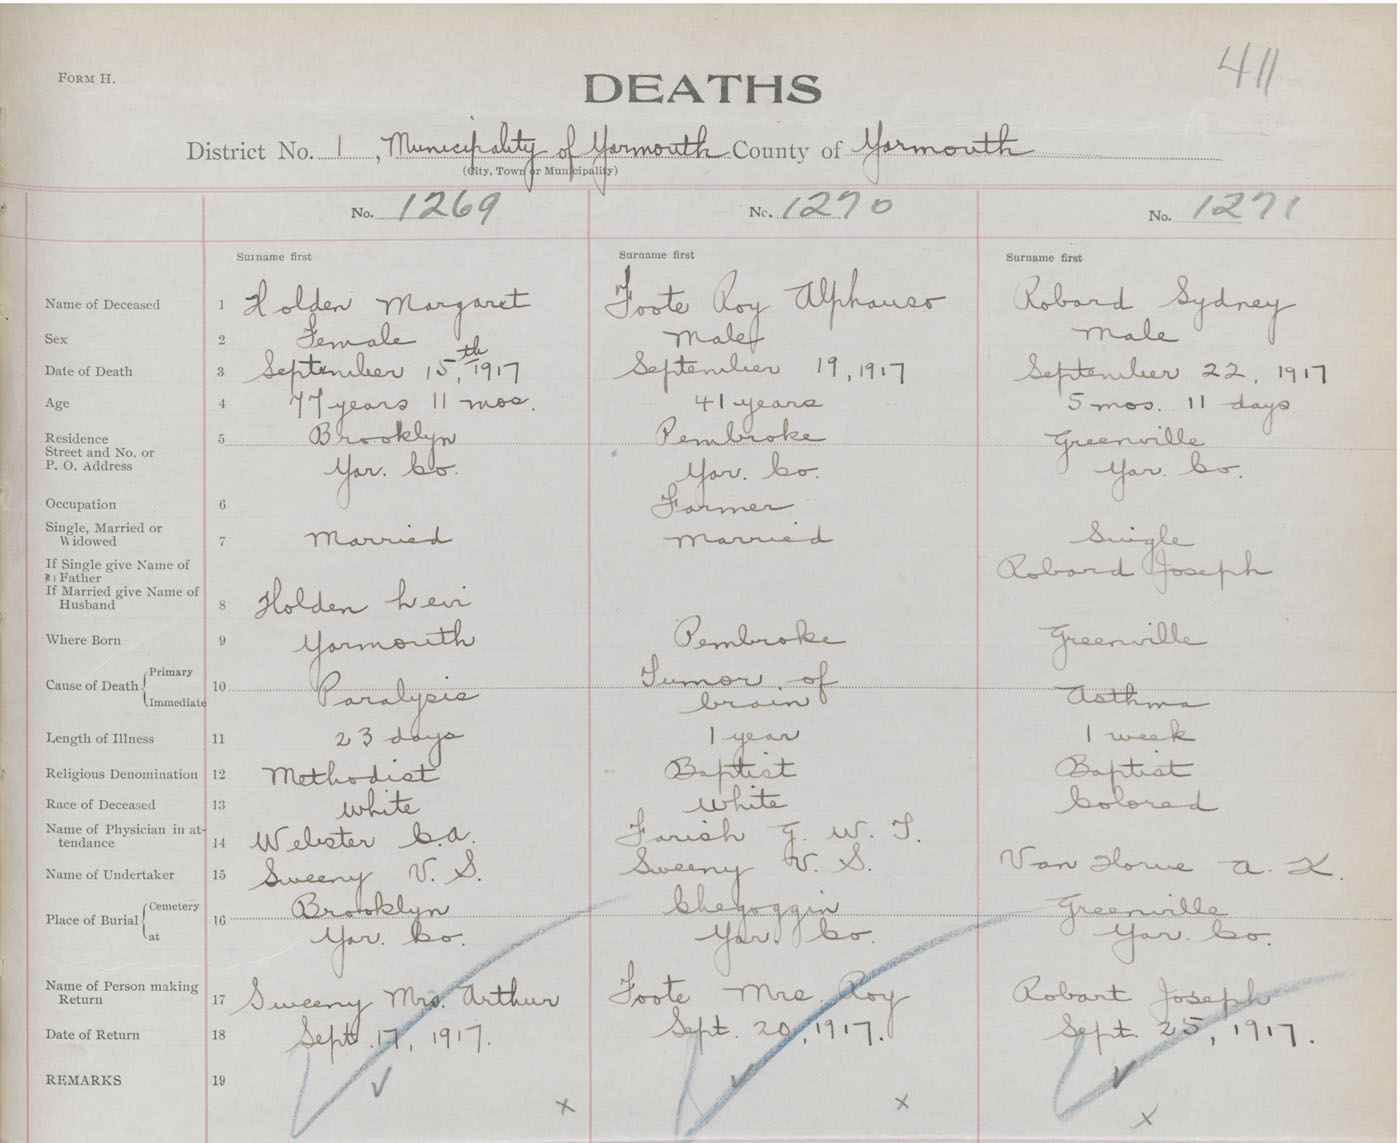 411
FORM H.
DEATHS
District No. 1, Municipality of Yarmouth County of Yarmouth
(City, Town or Municipality)
No. 1269 No. 1270 No. 1271
Surname first Surname first Surname first
Name of Deceased 1 Holden Margaret Foote Roy Alphauso Robard Sydney
Sex 2 Female Male Male
Date of Death 3 September 15th, 1917 September 19, 1917 September 22, 1917
Age 4 77 years 11 mos. 41 years 5 mos. 11 days
Residence 5 Brooklyn Pembroke Greenville
Street and No. or
P. O. Address Yar. Co. Yar. Co. Yar. Co.
Occupation 6 Farmer
Single, Married or
Widowed 7 Married Married Single
If Single give Name of
Father Robard Joseph
If Married give Name of
Husband 8 Holden Levi
Where Born 9 Yarmouth Pembroke Greenville
Cause of Death Primary Tumor of
Immediate 10 Paralysis brain Asthma
Length of Illness 11 23 days 1 year 1 week
Religious Denomination 12 Methodist Baptist Baptist
Race of Deceased 13 White White Colored
Name of Physician in at-
tendance 14 Webster C.A. Farish G. W. T.
Name of Undertaker 15 Sweeny V. S. Sweeny V. S. Van Horne A. K.
Place of Burial Cemetery 16 Brooklyn Chegoggin Greenville
at Yar. Co. Yar. Co. Yar. Co.
Name of Person making
Return 17 Sweeny Mrs. Arthur Foote Mrs. Roy Robart Joseph
Date of Return 18 Sept. 17, 1917. Sept. 20, 1917. Sept. 25, 1917.
REMARKS 19 ✓ ✓ ✓
x x x